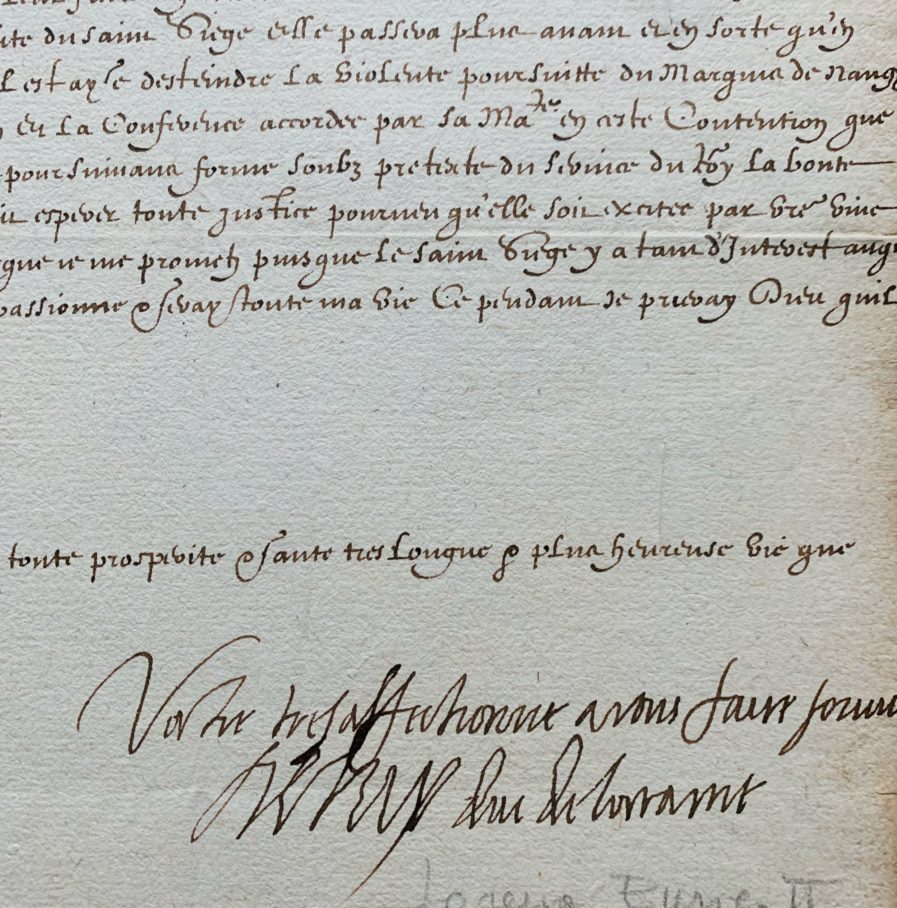 ite du saint Siege et elle passera plus avant et en sorte qu'en
l est aysé desteindre La violente poursuitte du Marquis de nang
en La Conference accordee par sa Ma.te en ceste Contention que
poursuivans forme soubz pretexte du service du Roy La bonte
espérer toute Justice pourveu qu'elle soit excitee par vre vive
que ie me prometz puisque le saint Siege y a tant d'Interest
passionne & seray toute ma vie Ce pendant Je prieray Dieu quil
toute prosperite & sante tres Longue & plus heureuse vie que
Votre tres affectionne a vous faire servi
Henry duc de lorraine